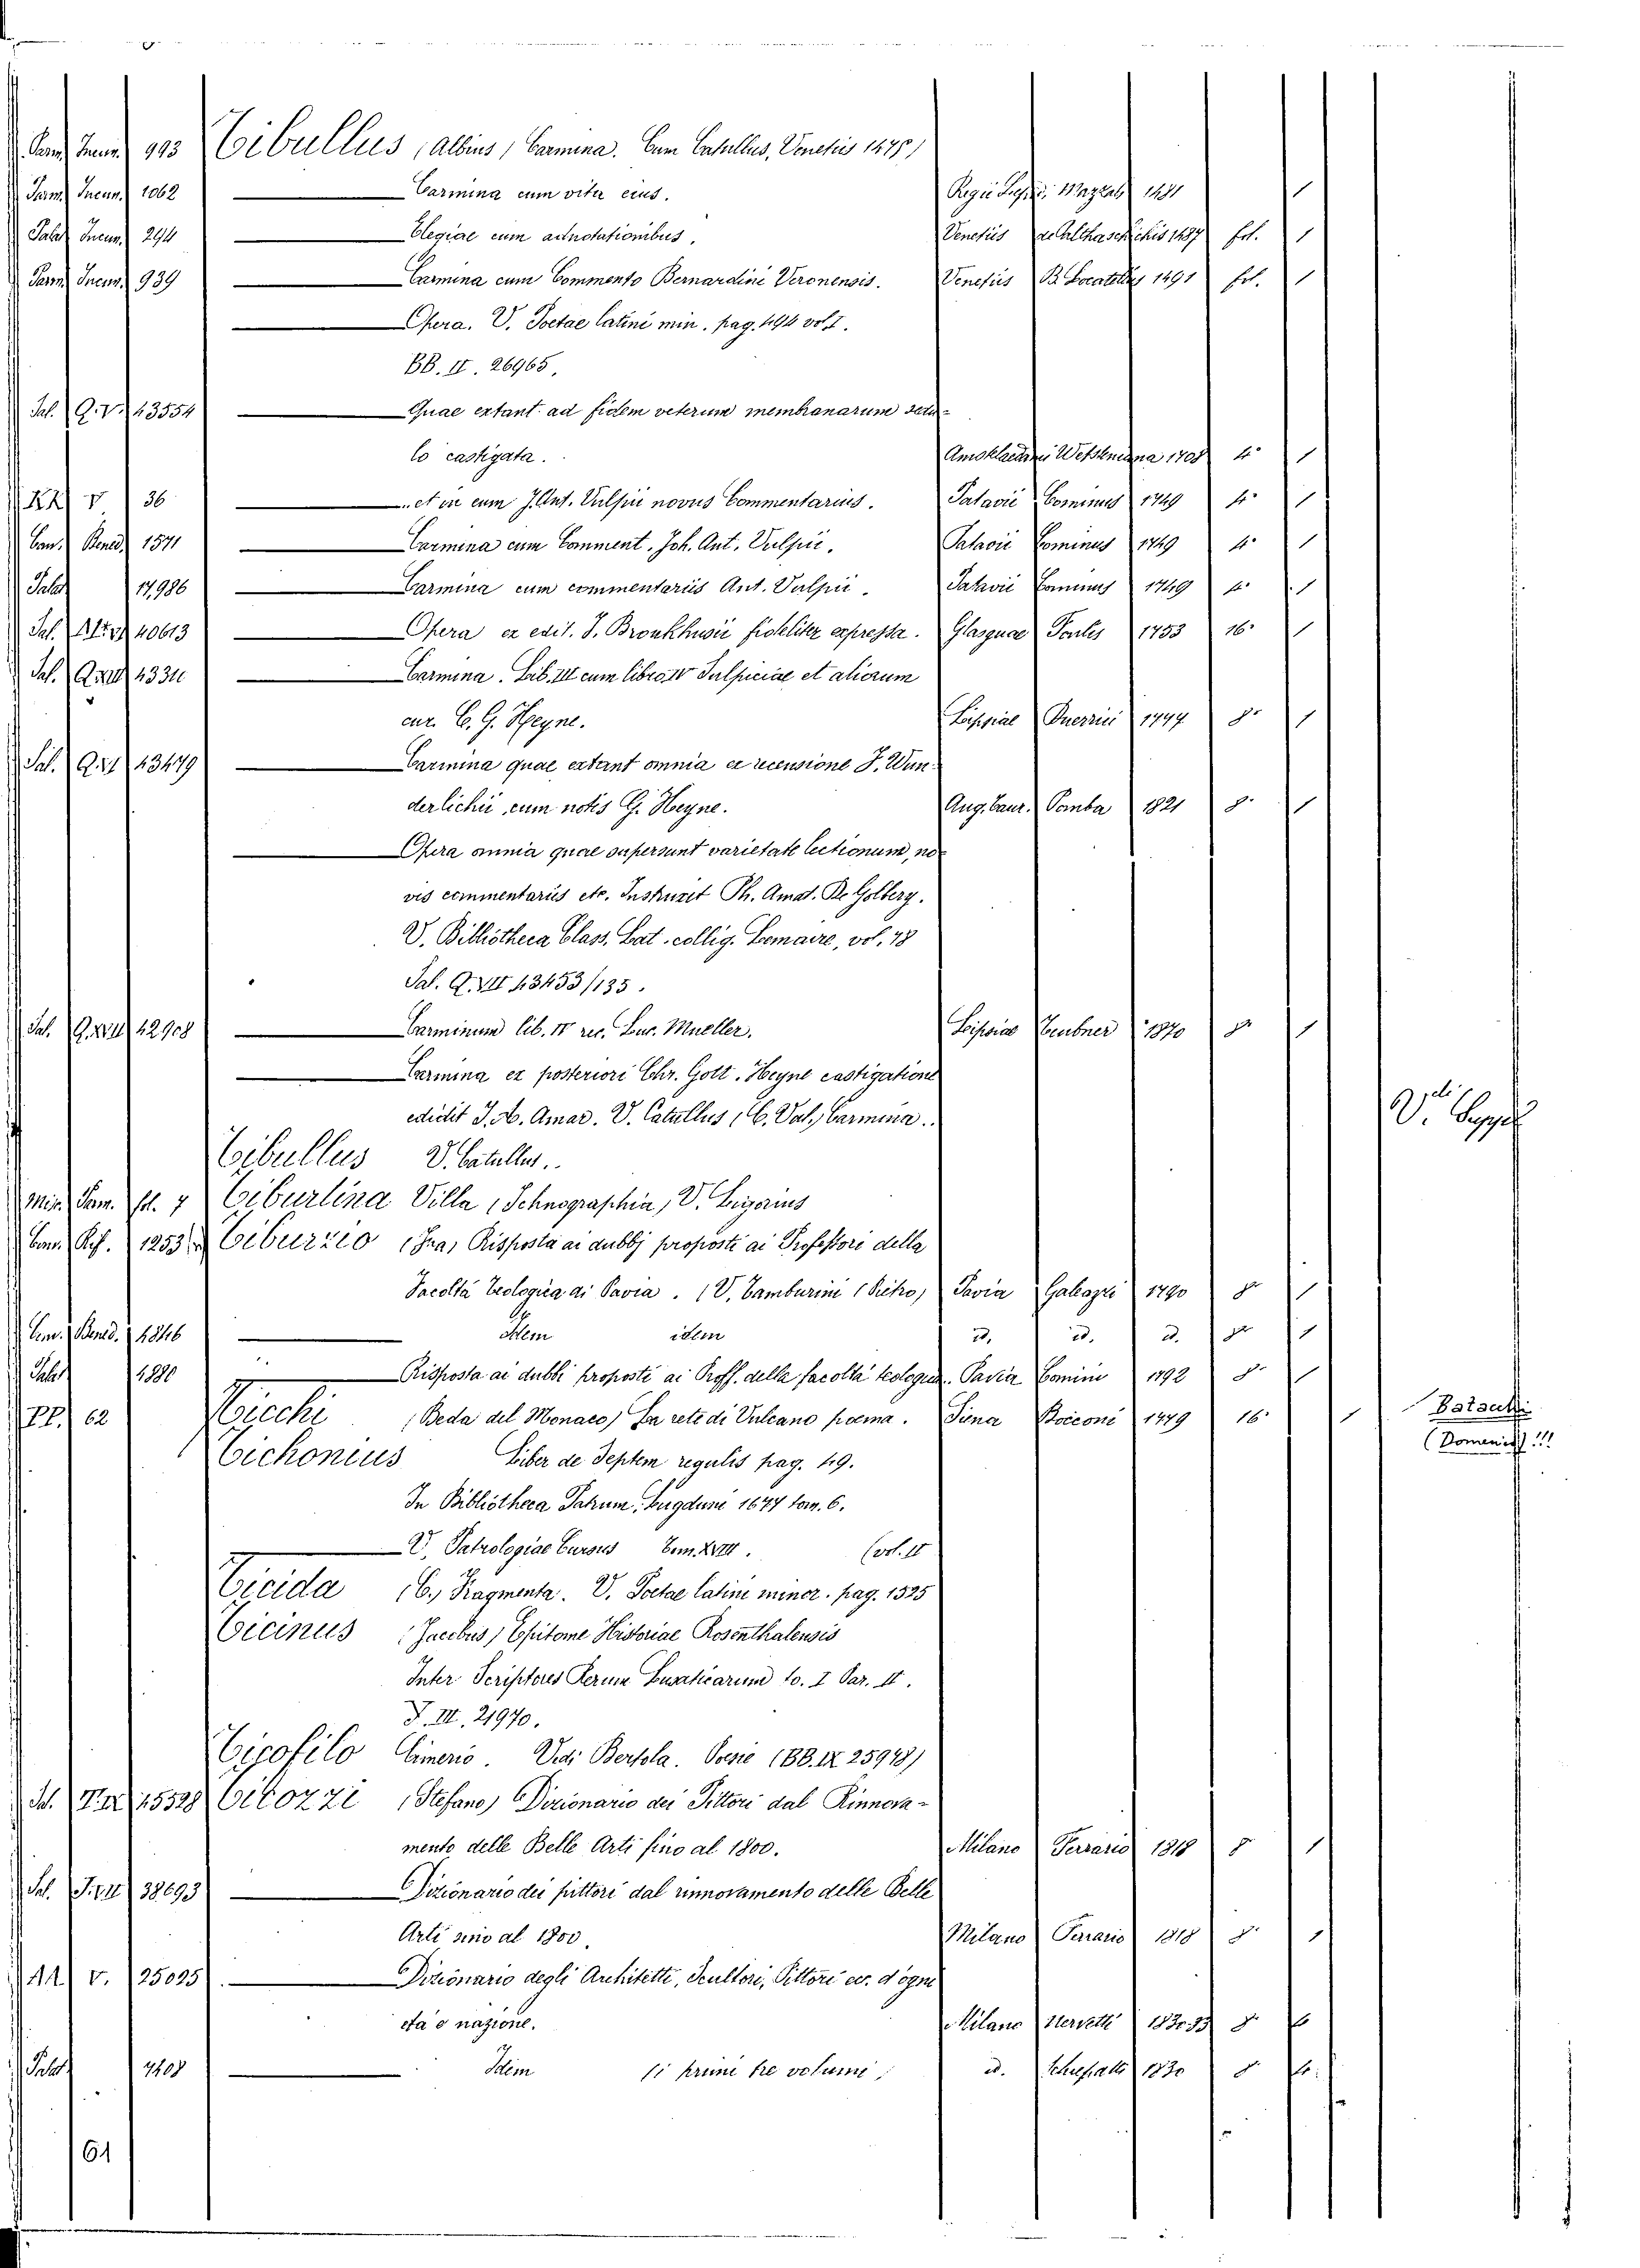 Parm. Incun. 993 Tibullus (Albius) Carmina. Cum Catullus, Venetiis 1475)
Parm. Incun. 1062 Carmina cum vita eius. Regii Lepidi. Mazzali 1481 1
Palat. Incun. 294 Elegiae cum adnotationibus, Venetiis 1487 fol. 1
Parm. Incun. 939 Carmina cum Commento Bernardini Veronensis. Venetiis B. Locatellus 1491 fol. 1
Opera. V. Poetae latini min. pag. 494 vol I.
BB. II. 26965.
Sal. Q.V. 43554 Quae extant ad fidem veterum membranarum sedu-
lo castigata. Amstelaedami Wetsteniana 1708 4° 1
KK V 36 .. et in eum J. Ant. Vulpii novus Commentarius. Patavii Cominus 1749 4° 1
Can. Bened. 1571 Carmina cum Comment. Joh. Ant. Vulpii. Patavii Cominus 1749 4° 1
Palat. 17,986 Carmina cum commentariis Ant. Vulpii. Patavii Cominus 1749 4° 1
Sal. 40613 Opera ex edit. J. Bronkhusii fideliter expressa. Glasguae Foulis 1753 16° 1
Sal. 4331 Carmina. Lib. III cum libro IV Sulpiciae et aliorum
cur. C. G. Heyne. Lipsiae 1777 8° 1
Sal. 43479 Carmina quae extant omnia ex recensione J. Wun-
derlichii, cum notis G. Heyne. Aug. Taur. Pomba 1821 8° 1
Opera omnia quae supersunt varietate lectionum, no-
vis commentariis etc. Instruxit Ph. Amat. De Golbery.
V. Bibliotheca Class. Lat. collig. Lemaire, vol. 78
Sal. Q. VII 43453/135.
Sal. 42908 Carminum lib. IV rec. Luc. Mueller. Leipsiae Teubner 1870 8° 1
Carmina ex posteriori Chr. Gott. Heyne castigatione
edidit J. A. Amar. V. Catullus (C. Val.) Carmina..
Tibullus V. Catullus..
Mis. Parm. fol. 7 Tiburtina Villa (Schnographia) V. Ligorius
Can. Rif. 1253 Tiburzio (Fra) Risposta ai dubbj proposti ai Professori della
Facoltà Teologica di Pavia. (V. Tamburini (Pietro) Pavia Galeazzi 1790 8° 1
Can. Bened. 4846 Idem idem id. id. id. 8° 1
Palat. 4880 Risposta ai dubbi proposti ai Proff. della facoltà teologica. Pavia Comini 1792 8° 1
PP. 62 Ticchi (Beda del Monaco) La rete di Vulcano poema. Siena Boiconi 1779 16° 1
Tichonius Liber de Septem regulis pag. 49.
In Bibliotheca Patrum, Lugduni 1677 tom. 6.
V. Patrologiae Cursus Tom. XVIII.
(vol. II
Ticida (C.) Fragmenta. V. Poetae latini minor. pag. 1525
Ticinus (Jacobus) Epitome Historiae Rosenthalensis
Inter Scriptores Rerum Lusaticarum to. I Par. II.
F. III. 21970.
Ticofilo Cimerio. Vedi Bertola. Poesie (BB. IX 25948)
Sal. 15528 Ticozzi (Stefano) Dizionario dei Pittori dal Rinnova-
mento delle Belle Arti fino al 1800. Milano Ferrario 1818 8 1
Sal. 38693 Dizionario dei pittori dal rinnovamento delle Belle
Arti sino al 1800. Milano Ferrario 1818 8° 1
AA V. 25025 Dizionario degli Architetti, Scultori, Pittori ecc. d'ogni
età e nazione. Milano Nervetti 1830.33 8°
Palat. 7408 Idem (i primi tre volumi) id. 1830 8°
V.di
Batacchi
(Domenico) !!!
61